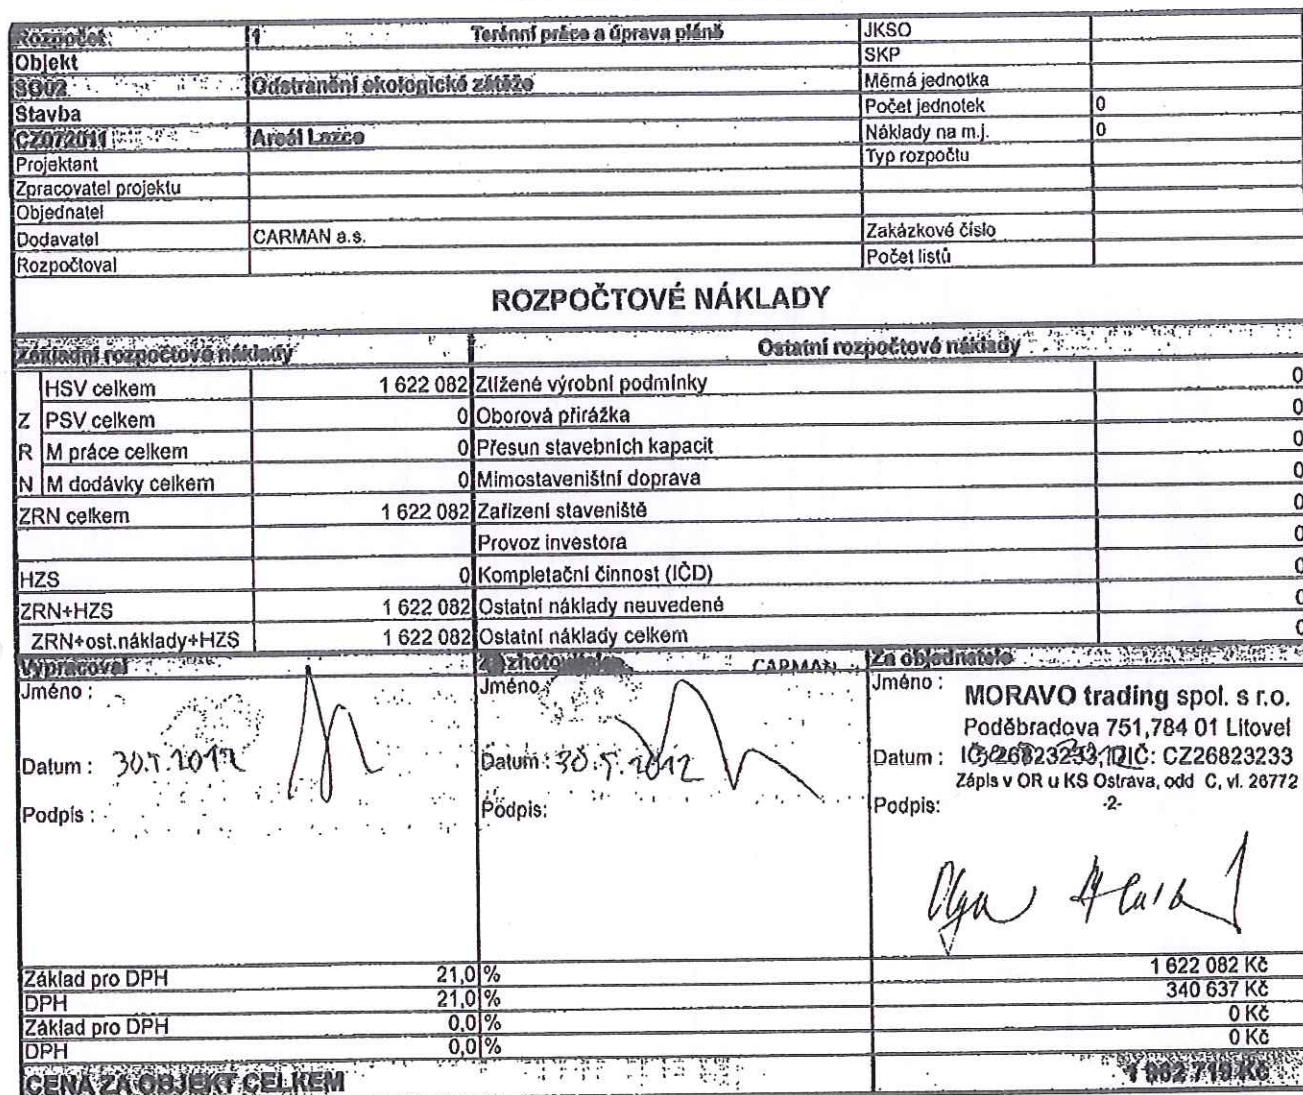 Rozpočet: 1 Terénní práce a úprava pláně JKSO
Objekt SKP
SO02 Odstranění ekologické zátěže Měrná jednotka
Stavba Počet jednotek 0
CZ072011 Areál Lazce Náklady na m.j. 0
Projektant Typ rozpočtu
Zpracovatel projektu
Objednatel
Dodavatel CARMAN a.s. Zakázkové číslo
Rozpočtoval Počet listů
ROZPOČTOVÉ NÁKLADY
Základní rozpočtové náklady Ostatní rozpočtové náklady
HSV celkem 1 622 082 Ztížené výrobní podmínky 0
Z PSV celkem 0 Oborová přirážka 0
R M práce celkem 0 Přesun stavebních kapacit 0
N M dodávky celkem 0 Mimostaveništní doprava 0
ZRN celkem 1 622 082 Zařízení staveniště 0
Provoz investora 0
HZS 0 Kompletační činnost (IČD) 0
ZRN+HZS 1 622 082 Ostatní náklady neuvedené 0
ZRN+ost.náklady+HZS 1 622 082 Ostatní náklady celkem 0
Vypracoval Za zhotovitele CARMAN Za objednatele
Jméno : Jméno Jméno :
MORAVO trading spol. s r.o.
Poděbradova 751,784 01 Litovel
Datum : 30.5.2012 Datum : 30.5.2012 Datum : IČ: 26823233, DIČ: CZ26823233
Zápis v OR u KS Ostrava, odd C, vl. 26772
Podpis : Podpis: Podpis: -2-
Základ pro DPH 21,0 % 1 622 082 Kč
DPH 21,0 % 340 637 Kč
Základ pro DPH 0,0 % 0 Kč
DPH 0,0 % 0 Kč
CENA ZA OBJEKT CELKEM 1 962 719 Kč